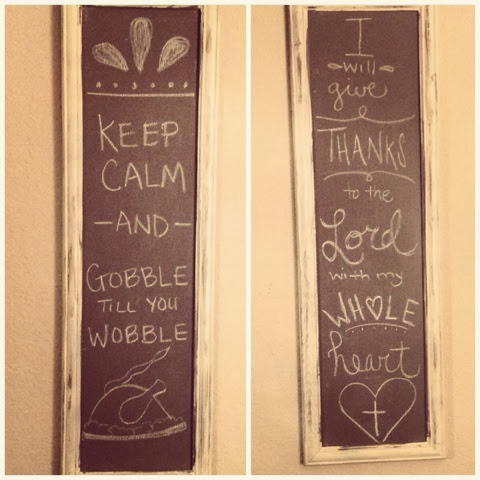 KEEP
CALM
-AND-
GOBBLE
TILL YOU
WOBBLE
I
will
give
THANKS
to the
Lord
with my
WH♡LE
heart